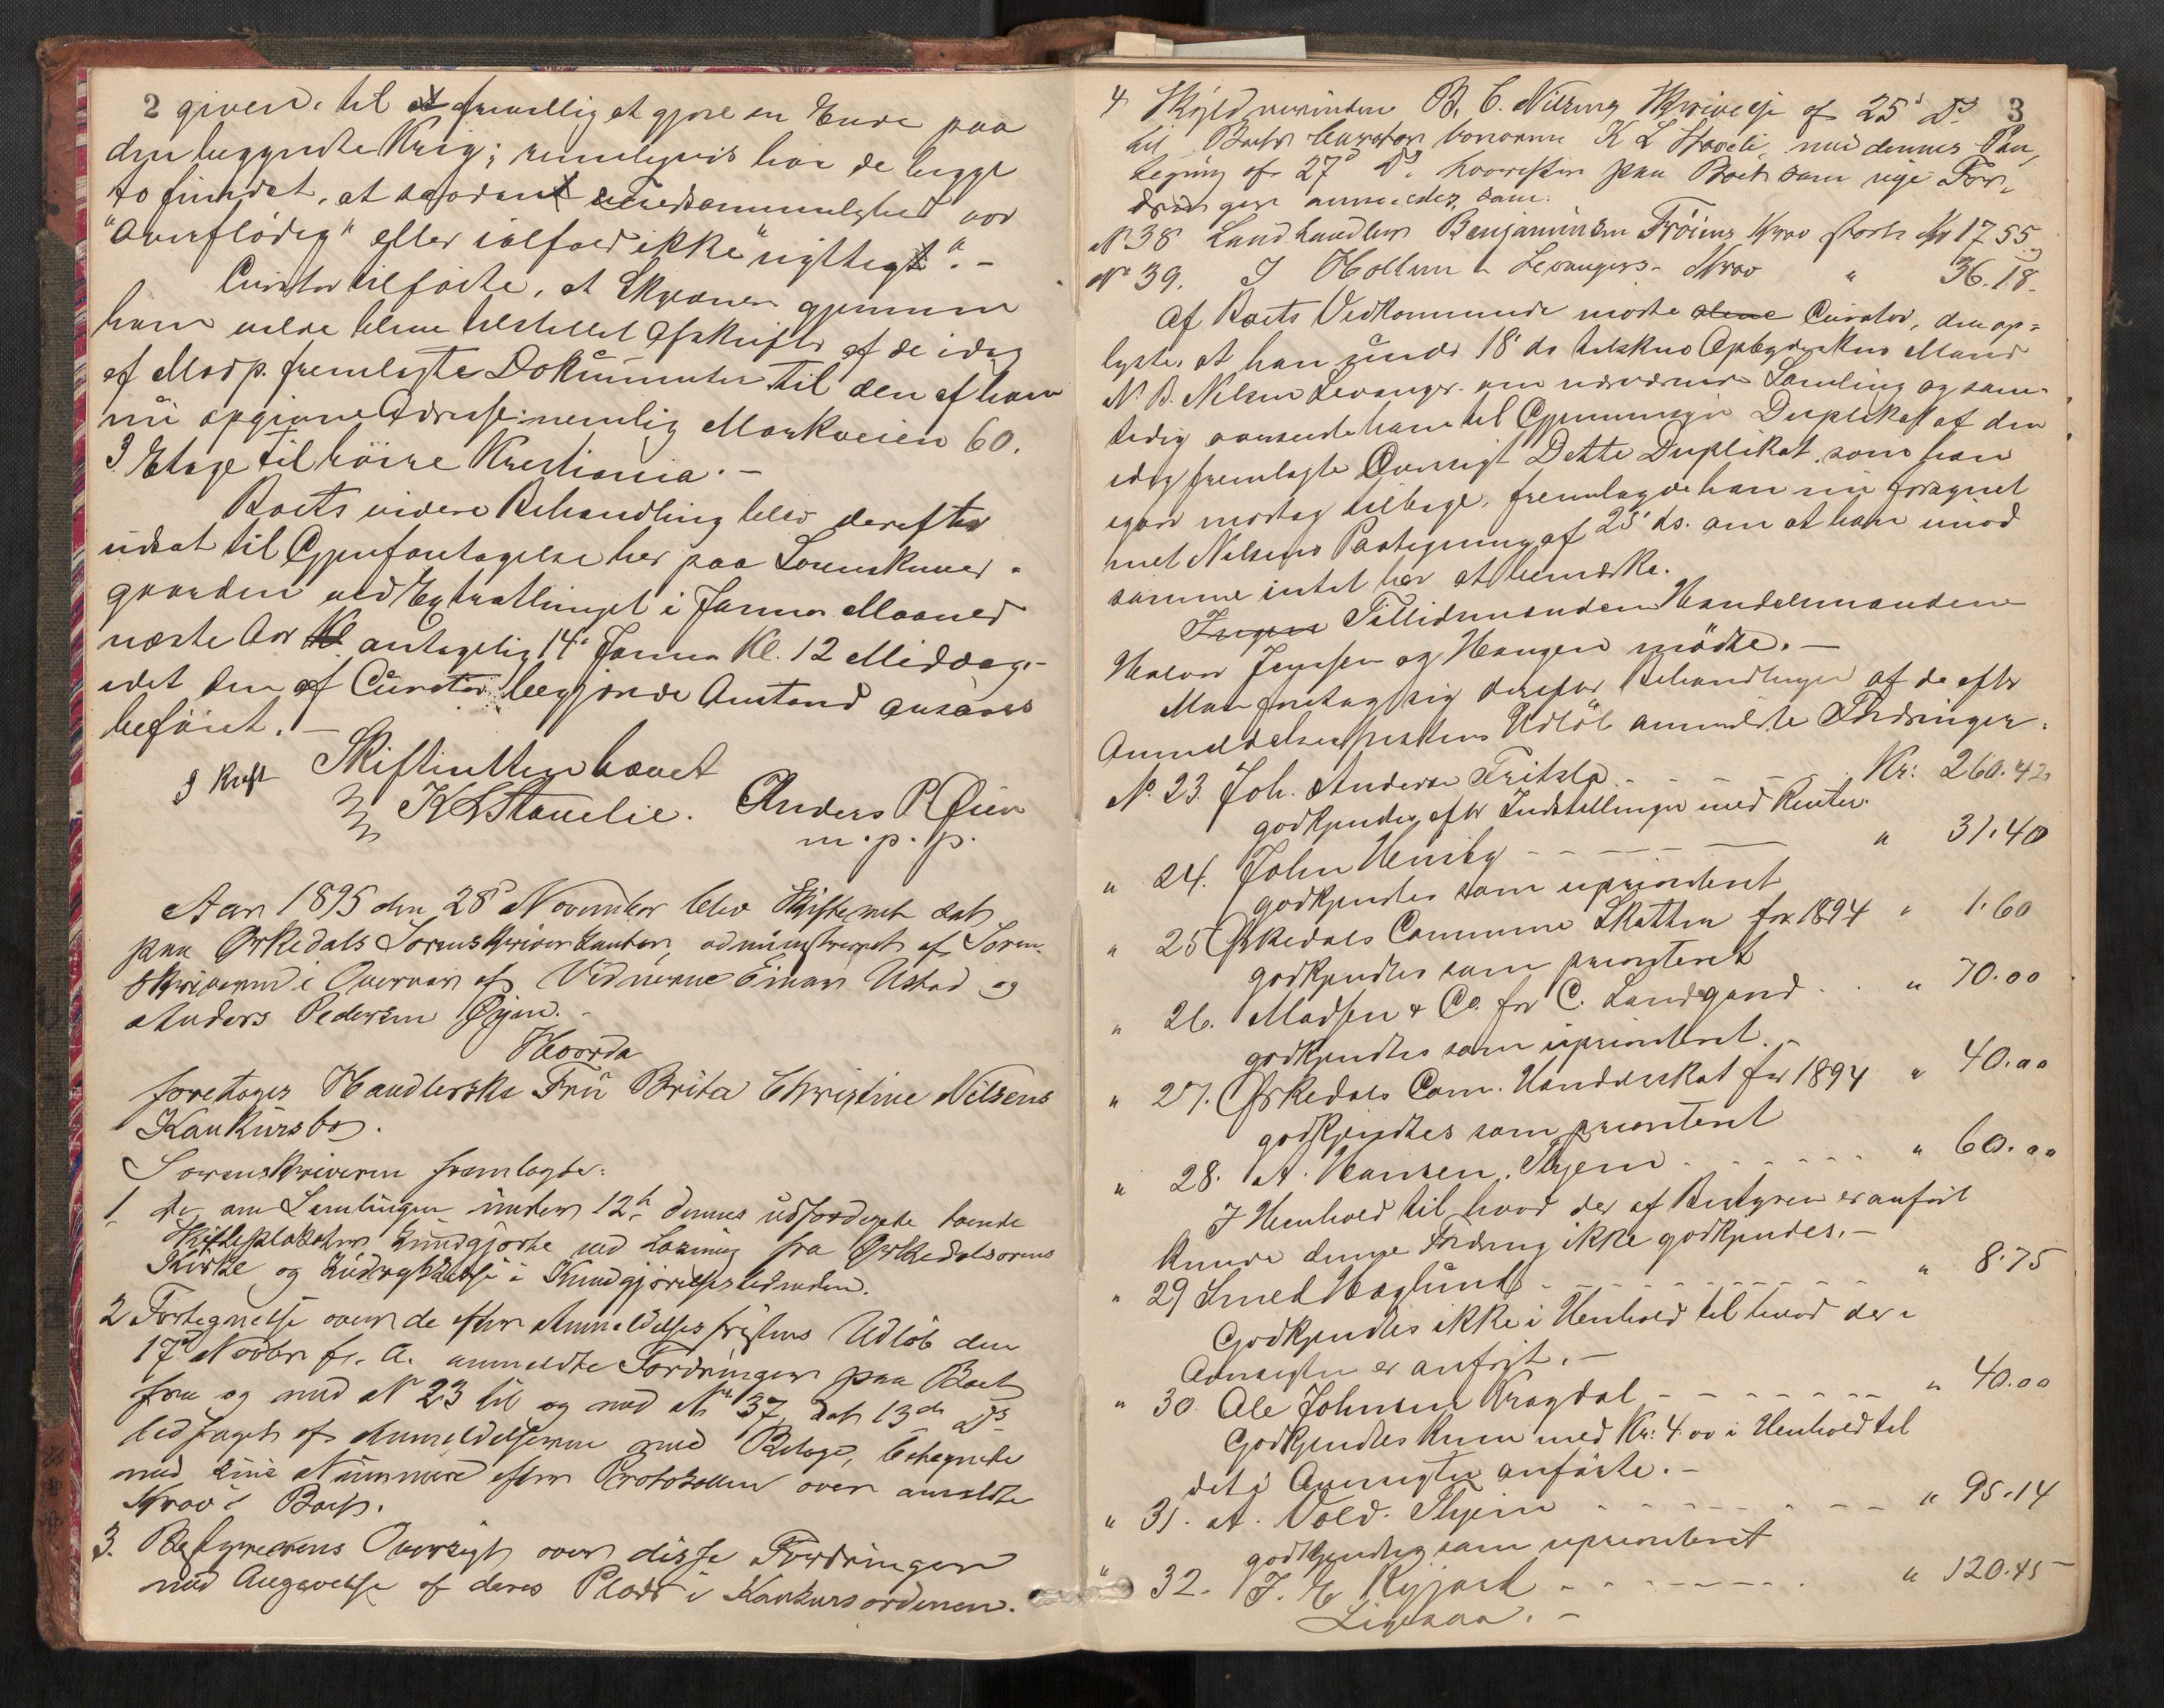 2 given, til at frivillig at gjøre en Ende paa
den begyndte Krig; rimeligvis har de begge
to fundet, at saadant var
"Overflødig" eller ialfald ikke "rigtigt". -
Curator tilførte, at Skyldneren gjennem
ham vilde blive tilstillet Afskrifter af de idag
af Modp. fremlagte Dokumenter til den af ham
nu opgivne Adresse: nemlig Markveien 60.
3 Etage til høire Kristiania. -
Boets videre Behandling blev derefter
udsat til Gjenforetagelse her paa Sorenskriver-
gaarden ved Extrathinget i Januar Maaned
næste Aar Kl antagelig 14de Januar Kl. 12 Middag -
idet den af Curator begjærede Anstand ansaaes
beføiet. -
Skifteretten hævet
J Kraft
K L Stavelie. Anders P. Øien
m. p. p.
Aar 1895 den 28d November blev Skifteret sat
paa Ørkedals Sorenskriverkontor, administreret af Soren-
skriveren i Overvær af Vidnerne Einar Ustad og
Anders Pedersen Øyen. -
Hvorda
foretoges Handlerske Fru Brita Christine Nilsens
Konkursbo.
Sorenskriveren fremlagde:
1 de om Samlingen under 12te dennes udfærdigede tvende
Skifteplakater kundgjorte ved Læsning fra Ørkedalsørens
Kirke og Indrykkelse i Kundgjørelsestidenden.
2 Fortegnelse over de efter Anmeldelsesfristens Udløb den
17d Novbr f. A. anmeldte Fordringer paa Boet
fra og med N 23 til og med Nr 37, dat 13de Ds
ledsaget af Anmeldelserne med Bilage, betegnede
med sine Nummere efter Protokollen over anmeldte
Krav i Boet.
3. Bestyrerens Oversigt over disse Fordringer
med Angivelse af deres Plads i Konkursordenen.
4 Skyldnerinden B. C. Nilsens Skrivelse af 25d Ds 3
til Boets Curator bonorum K L Stavelie, med dennes Paa-
tegning af 27d Ds. hvorefter paa Boet som nye For-
dringer anmeldes, som:
No 38 Landhandler Benjaminsen Frøiens Krav stort Kr 17.55
No 39. J Hollum Levangers Krav " 36.18.
Af Boets Vedkommende mødte alene Curator, der op-
lyste, at han under 18 ds tilskrev Opbyderskens Mand
N. B. Nilsen Levanger om nærværende Samling og sam-
tidig oversendte ham til Gjennemsyn Duplikat af den
idag fremlagte Oversigt Dette Duplikat, som han
igaar modtog tilbage, fremlagde han nu forsynet
med Nilsens Paategning af 25 ds. om at han imod
samme intet har at bemærke.
Ingen Tillidsmændene Handelsmændene
Halvor Jenssen og Haugen mødte. -
Man foretog sig derefter Behandlingen af de efter
Anmeldelsesfristens Udløb anmeldte Fordringer:
No. 23. Joh. Andersen Fritsla - - - - Kr: 260.42
godkjendes efter Indstillingen med Renter.
" 24. John Hemby - - - - " 31.40
godkjendtes som uprioriteret
" 25 Ørkedals Commune Skatten for 1894 " 1.60
godkjendtes som prioriteret
" 26. Madsen & Co. for C. Lundgaard . . " 70.00
godkjendtes som uprioriteret. -
" 27. Ørkedals Com. Handelsskat for 1894 " 40.00
godkjendtes som prioriteret
" 28. A. Hansen, Thjem - - - - " 60.00
I Henhold til, hvad der af Bestyreren er anført
kunde denne Fordring ikke godkjendes. -
" 29 Smed Haglund - - - - " 8.75
Godkjendtes ikke i Henhold til hvad der i
Oversigten er anført. -
" 30. Ole Johnsen Kragdal - - - - " 40.00
Godkjendtes kun med Kr: 4.00 i Henhold til
det i Oversigten anførte. -
" 31. A. Vold. Thjem - - - - " 95.14
godkjendtes som uprioriteret
" 32. J. E - - - - " 120.45
Ligesaa. -